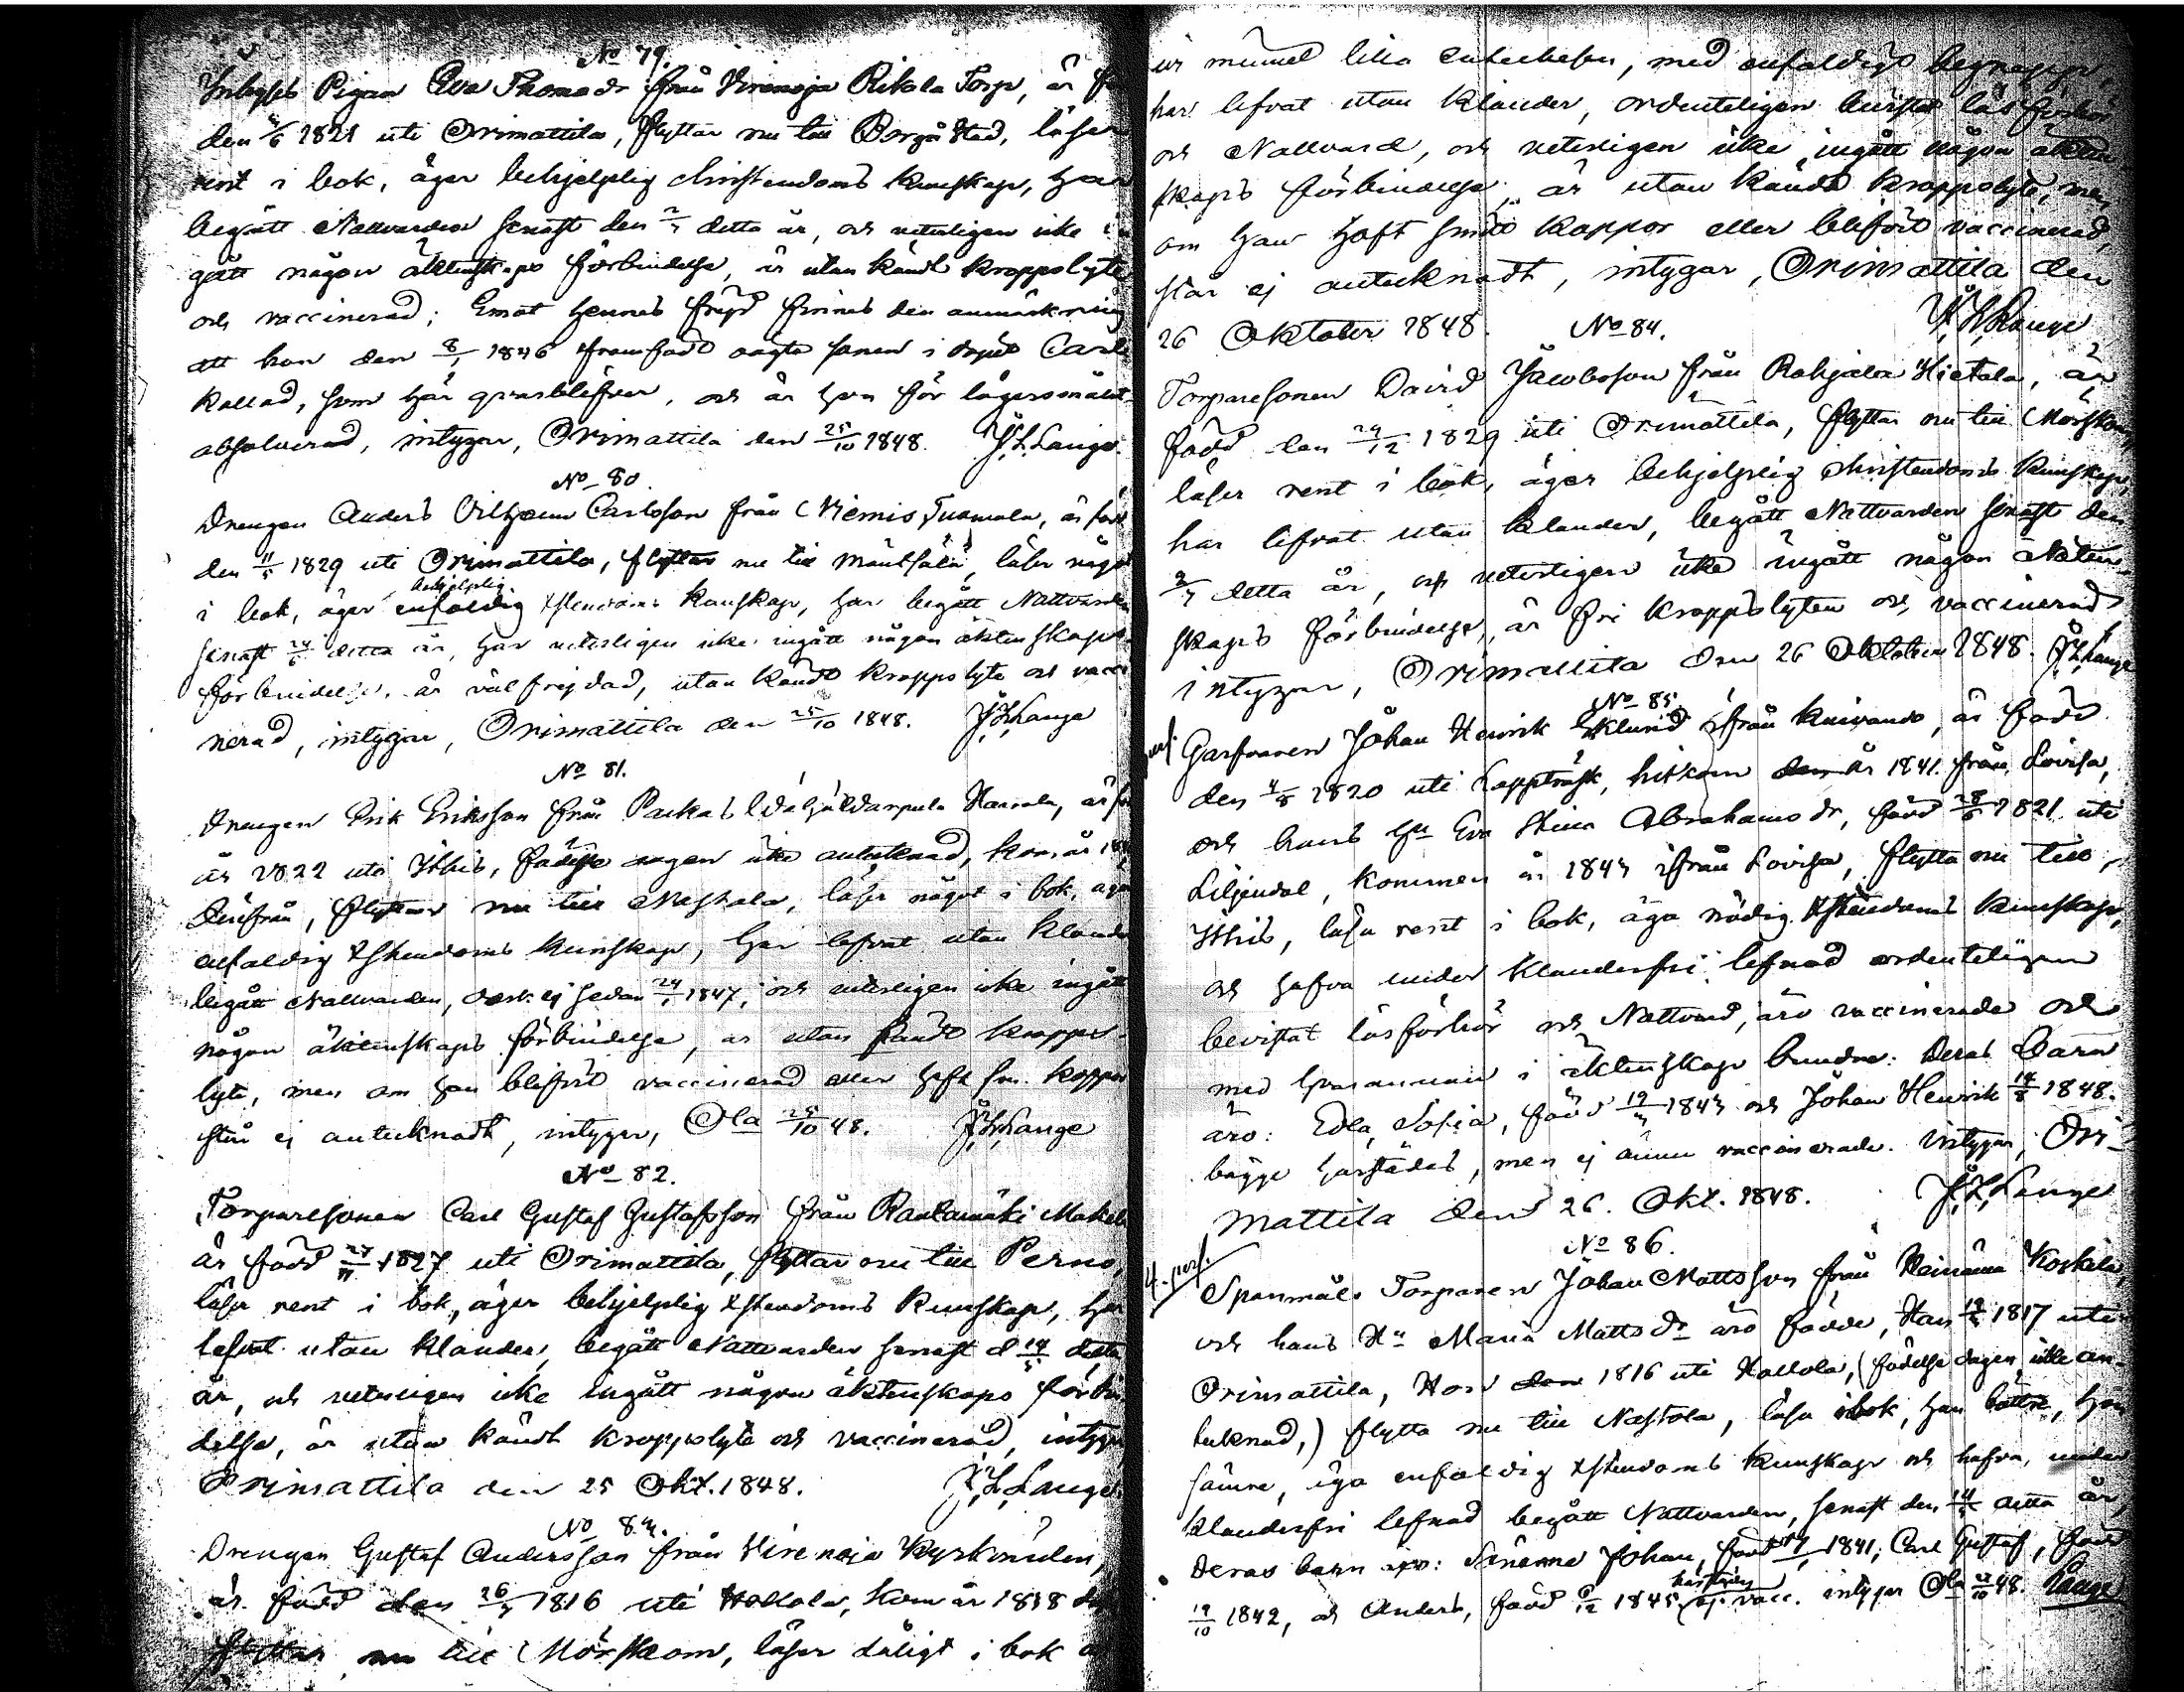 No 79.
Inhyses Pigan Eva Thomasdr från Virenoja Rikola Torp, är
den 6/6 1821 uti Orimattila, flyttar nu till Borgå Stad, läser
rent i bok, äger behjelplig christendoms kunskap, har
begått Nattvarden senast den detta år, och veterligen icke
gått någon äktenskaps förbindelse, är utan kändt kroppslyte
och vaccinerad; Emot hennes frejd finnes den anmärkning
att hon den 8/1 1846 framfödt oägta sonen i dopet Carl
kallad, som här qvarblifver, och är hon för lägersmålet
absolverad, intygar, Orimattila den 25/10 1848. J.L. Lange.
No 80.
Drengen Anders Vilhelm Carlsson från Niemis Tuomala, är född
den 11/5 1829 uti Orimattila, flyttar nu till Mäntsälä, läser något
behjelplig
i bok, äger enfaldig Xstendoms kunskap, har begått Nattvarden
senast 24/6 detta år, har veterligen icke ingått någon äktenskaps
förbindelse, är välfrejdad, utan kändt kroppslyte och vacci
nerad, intygar, Orimattila den 25/10 1848. J.L. Lange
No 81.
Drengen Erik Eriksson från Packas Hassala, är
år 1822 uti Itthis, födelse dagen icke antecknad, kom år
derifrån, flyttar nu till Nastola, läser något i bok, äger
enfaldig Xstendoms kunskap, har lefvat utan klander
begått Nattvarden, dock ej sedan 24/ 1847, och veterligen icke ingått
någon äktenskaps förbindelse, är utan kändt kropps-
lyte, men om han blifvit vaccinerad eller haft sm. koppor
står ej antecknadt, intygar, Ola 25/10 48. J.L. Lange
No 82.
Torparesonen Carl Gustaf Gustafsson från Rantamäki Mäkelä
är född 27/11 1827 uti Orimattila, flyttar nu till Perno,
läser rent i bok, äger behjelplig Xstendoms kunskap, har
lefvat utan klander, begått Nattvarden senast d 14/5 detta
år, och veterligen icke ingått någon äktenskaps förbin
delse, är utan kändt kroppslyte och vaccinerad, intygar
Orimattila den 25 Okt. 1848. J.L. Lange
No 83.
Drengen Gustaf Andersson från Virenoja Kyrkonden,
är född den 26/ 1816 uti Hollola, kom år 1838
flyttar nu till Mörskom, läser dåligt i bok
ur minnet lilla catechesen, med enfaldigt begrepp,
har lefvat utan klander, ordenteligen bevistat läsförhör
och Nattvard, och veterligen icke ingått någon äkten
skaps förbindelse, är utan kändt kroppslyte, men
om han haft små koppor eller blifvit vaccinerad,
står ej antecknadt, intygar, Orimattila den
26 Oktober 1848. J.L. Lange
No 84.
Torparesonen David Jacobsson från Rahjala Hietala, är
född den 24/12 1829 uti Orimattila, flyttar nu till Mörskom,
läser rent i bok, äger behjelplig christendoms kunskap,
har lefvat utan klander, begått Nattvarden senast den
2/7 detta år, och veterligen icke ingått någon äkten
skaps förbindelse, är fri kroppslyten och vaccinerad
intygar, Orimattila den 26 Oktober 1848. J.L. Lange
No 85.
Garfvaren Johan Henrik Eklund ifrån Kuivando, är född
den 4/8 1820 uti Lappträsk, hitkom den år 1841 från Lovisa,
och hans Hu Eva Stina Abrahamsdr, född 28/6 1821 uti
Liljendal, kommen år 1843 ifrån Lovisa, flytta nu till
Itthis, läsa rent i bok, äga nödig Xstendoms kunskap,
och hafva under klanderfri lefnad ordenteligen
bevistat läsförhör och Nattvard, äro vaccinerade och
med hvarannan i äktenskap bundne: Deras Barn
äro: Edla Sofia, född 19/ 1843 och Johan Henrik 14/8 1848.
bägge härstädes, men ej ännu vaccinerade. Intygar, Ori-
mattila den 26. Okt. 1848. J.L. Lange
No 86.
4. pers.
Spanmåls Torparen Johan Mattsson från Heinämä Koskela,
och hans Hu Maria Mattsdr äro födde, Han 19/ 1817 uti
Orimattila, Hon den 1816 uti Hollola, (födelse dagen icke an-
tecknad,) flytta nu till Nastola, läsa i bok, han bättre, hon
sämre, äga enfaldig Xstendoms kunskap och hafva, under
klanderfri lefnad begått Nattvarden, senast den 14/ detta år,
Deras barn äro: Sönerne Johan, född 1841, Carl Gustaf, född
härstädes
19/10 1842, och Anders, född 6/12 1845, ej vacc. intygar Ola 28/10 48. Lange